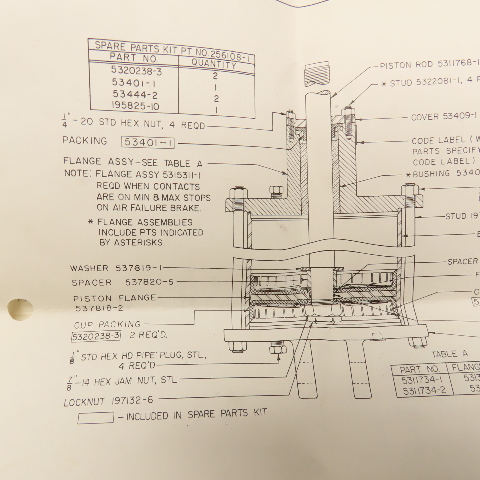 SPARE PARTS KIT PT NO. 256106-1
PART NO. QUANTITY
5320238-3 2
53401-1 1
53444-2 2
195825-10 1
1/4"-20 STD HEX NUT, 4 REQD
PACKING 53401-1
FLANGE ASSY-SEE TABLE A
NOTE: FLANGE ASSY 5315311-1
REQD WHEN CONTACTS
ARE ON MIN & MAX STOPS
ON AIR FAILURE BRAKE.
* FLANGE ASSEMBLIES
INCLUDE PTS INDICATED
BY ASTERISKS.
WASHER 537819-1
SPACER 537820-5
PISTON FLANGE
537818-2
CUP PACKING
5320238-3 2 REQ'D.
STD HEX HD PIPE PLUG, STL,
4 REQ'D
-14 HEX JAM NUT, STL
LOCKNUT 197132-6
- INCLUDED IN SPARE PARTS KIT
PISTON ROD 5311768-1
* STUD 5322081-1, 4 R
COVER 53409-1
CODE LABEL (W
PARTS SPECIFY
CODE LABEL)
*BUSHING 5340
STUD 19
SPACER
TABLE A
PART NO. FLANG
5311734-1 531
5311734-2 53